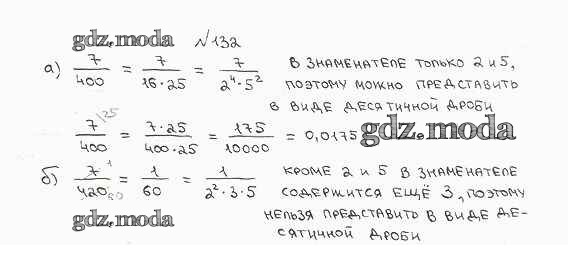 gdz.moda №132
а) 7/400 = 7/(16·25) = 7/(2⁴·5²) В ЗНАМЕНАТЕЛЕ ТОЛЬКО 2 и 5,
ПОЭТОМУ МОЖНО ПРЕДСТАВИТЬ
В ВИДЕ ДЕСЯТИЧНОЙ ДРОБИ
7/400 /25 = (7·25)/(400·25) = 175/10000 = 0,0175 gdz.moda
б) 7/420 1 60 = 1/60 = 1/(2²·3·5) КРОМЕ 2 и 5 В ЗНАМЕНАТЕЛЕ
СОДЕРЖИТСЯ ЕЩЁ 3, ПОЭТОМУ
НЕЛЬЗЯ ПРЕДСТАВИТЬ В ВИДЕ ДЕ-
gdz.moda СЯТИЧНОЙ ДРОБИ